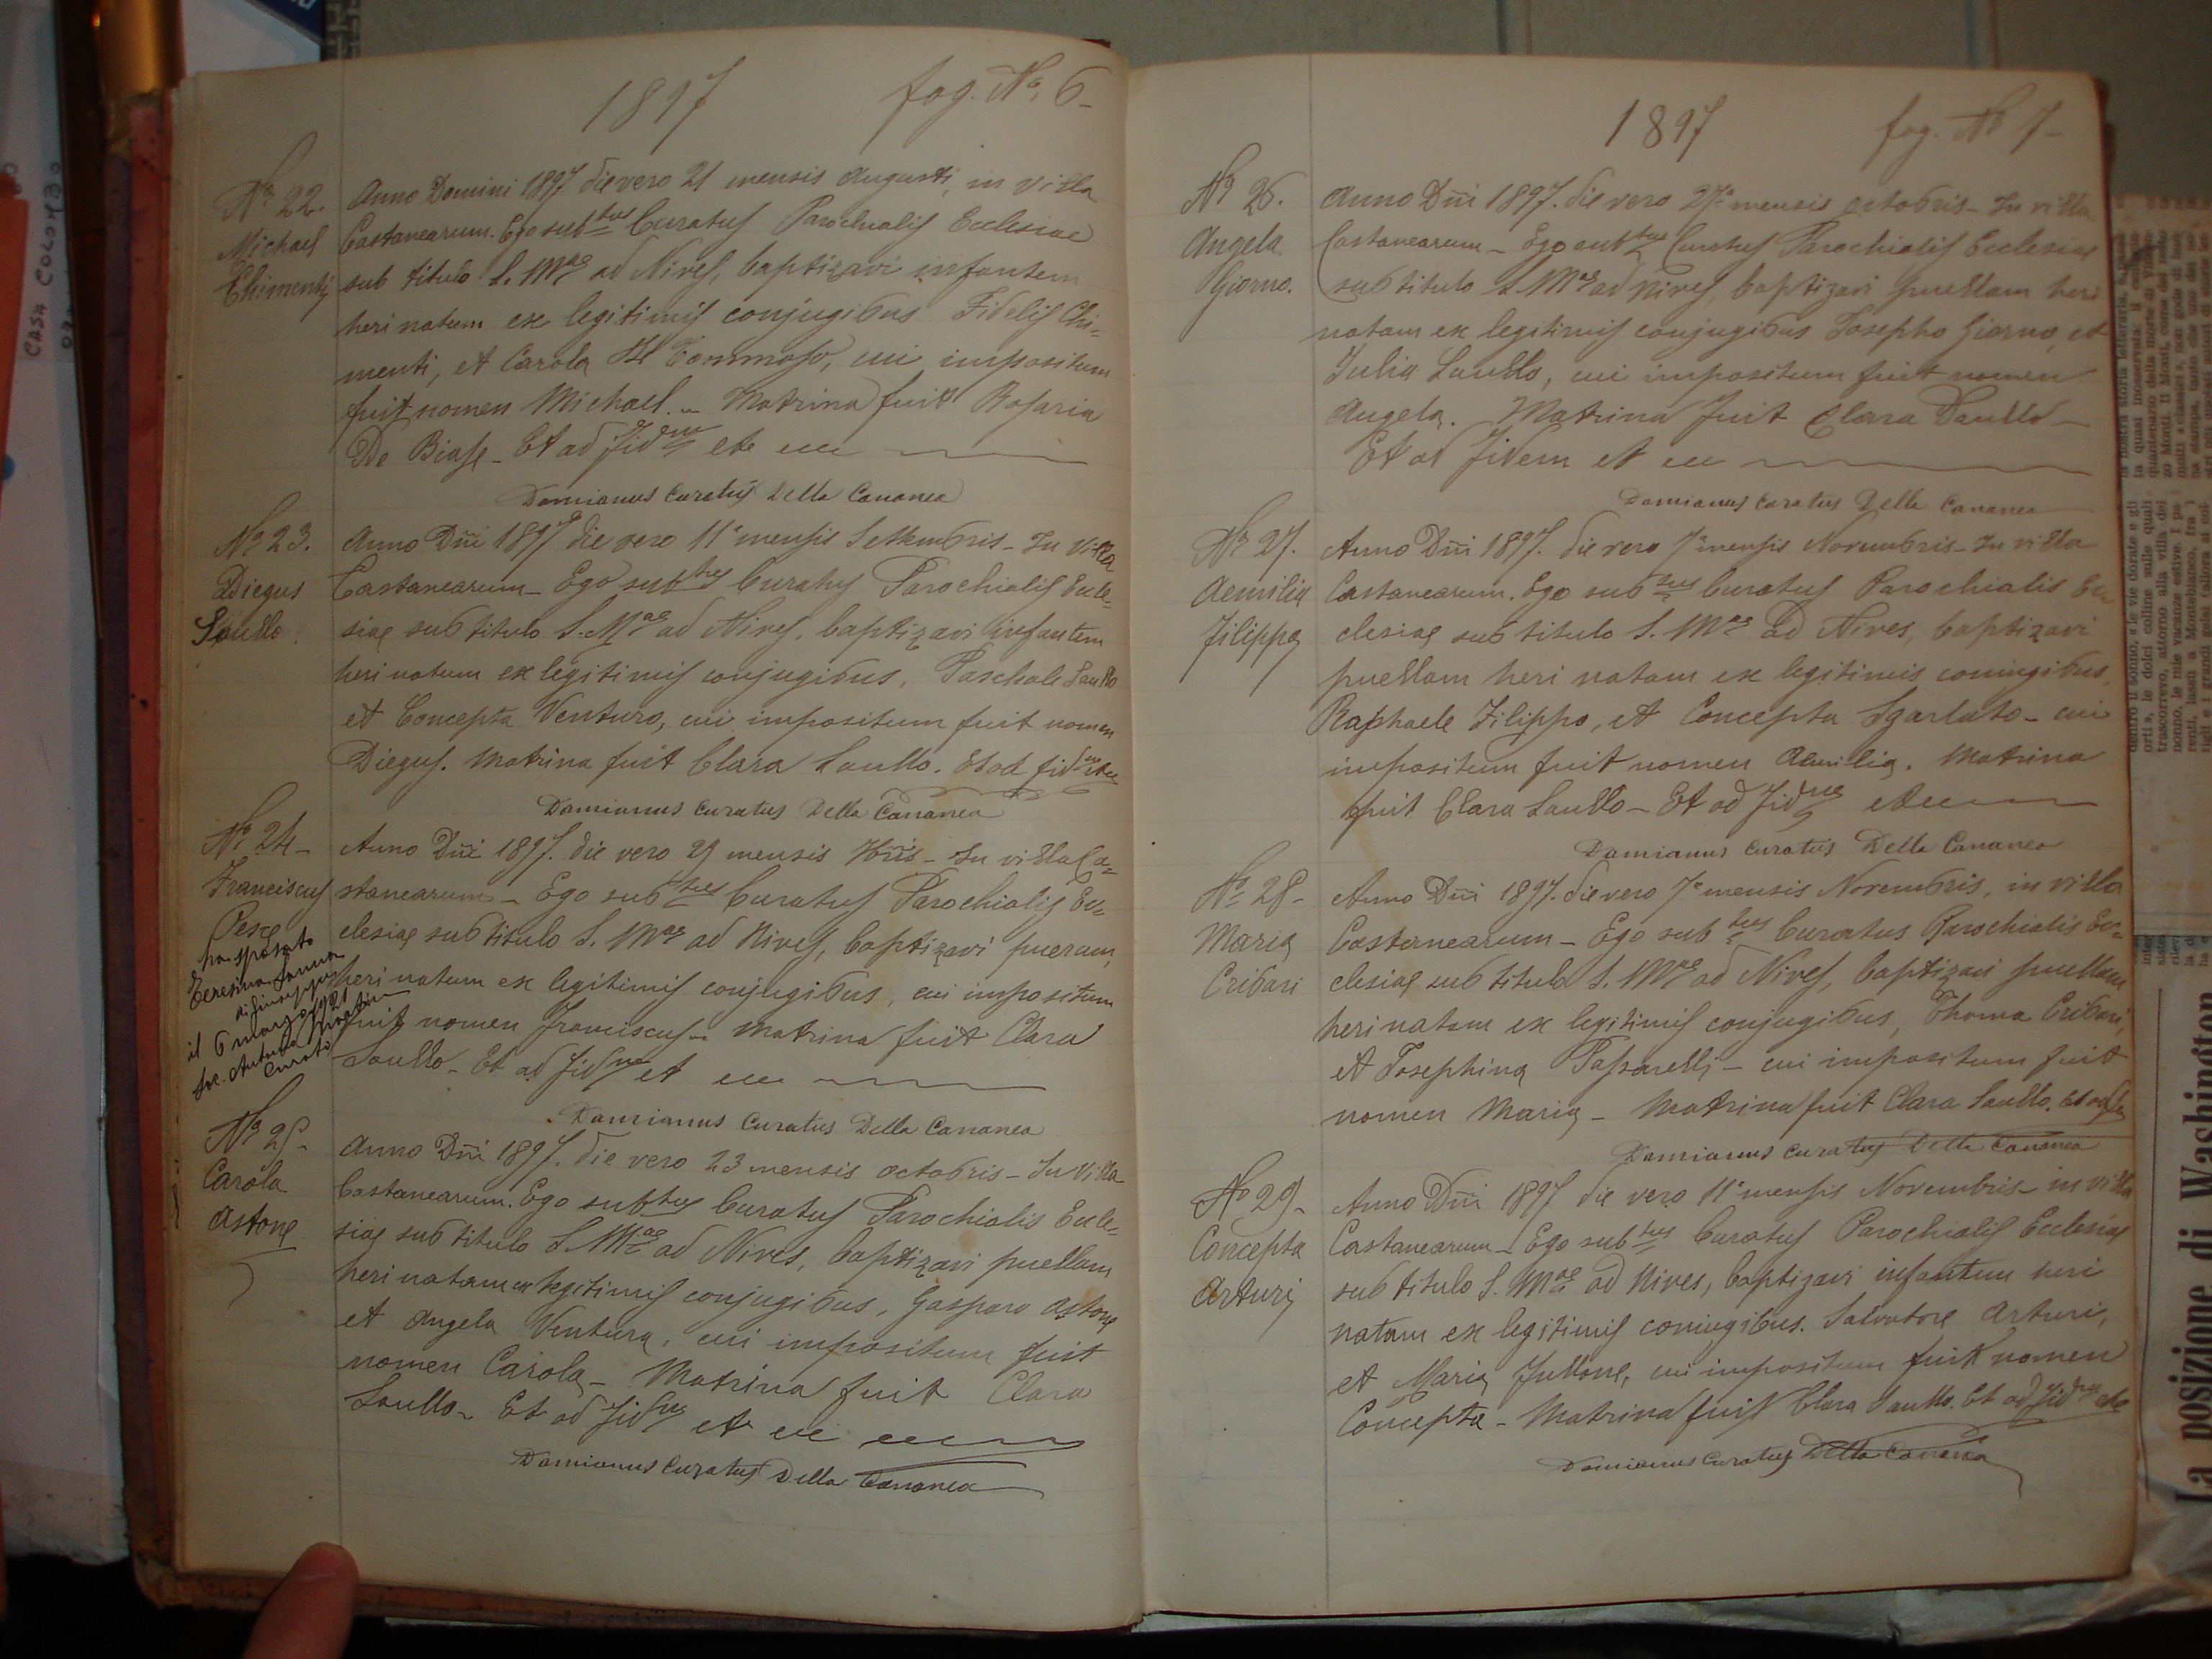 1897 fog. No. 6-
No 22.
Michael
Chimenti
Anno Domini 1897 die vero 21 mensis Augusti, in villa
Castanearum. Ego subtus Curatus Parochialis Ecclesiae
sub titulo S. Mae ad Nives, baptizavi infantem
heri natum ex legitimis conjugibus Fidelis Chi=
menti, et Carola Tommaso, cui impositum
fuit nomen Michael. - Matrina fuit Rosaria
De Biase - Et ad fidem etc
Damianus Curatus Della Cananea
No 23.
Diegus
Saullo.
Anno Dñi 1897 die vero 11° mensis Settembris - In Villa
Castanearum - Ego subtus Curatus Parochialis Eccle=
siae sub titulo S. Mae ad Nives, baptizavi infantem
heri natum ex legitimis conjugibus, Paschale Saullo
et Concepta Venturo, cui impositum fuit nomen
Diegus. Matrina fuit Clara Saullo. Et ad fidem etc
Damianus Curatus Della Cananea
No 24-
Franciscus
Pesce
ha sposato
Teresina
di Giuseppe
il 6 marzo 1921
Curato
Anno Dñi 1897. die vero 29 mensis - In villa Ca=
stanearum - Ego subtus Curatus Parochialis Ec=
clesiae sub titulo S. Mae ad Nives, baptizavi puerum,
heri natum ex legitimis conjugibus, cui impositum
fuit nomen Franciscus - Matrina fuit Clara
Saullo - Et ad fidem et
Damianus Curatus Della Cananea
No 25-
Carola
Astone
Anno Dñi 1897. die vero 23 mensis octobris - In Villa
Castanearum. Ego subtus Curatus Parochialis Eccle=
siae sub titulo S. Mae ad Nives, baptizavi puellam
heri natam ex legitimis conjugibus, Gasparo Astone
et Angela Ventura, cui impositum fuit
nomen Carola - Matrina fuit Clara
Saullo - Et ad fidem et
Damianus Curatus Della Cananea
1897 fog. No 7-
No 26.
Angela
Giorno.
Anno Dñi 1897. die vero 27° mensis octobris - In villa
Castanearum - Ego subtus Curatus Parochialis Ecclesiae
sub titulo S. Mae ad Nives, baptizavi puellam heri
natam ex legitimis conjugibus Josepho Giorno, et
Julia Saullo, cui impositum fuit nomen
Angela. Matrina fuit Clara Saullo -
Et ad fidem et
Damianus Curatus Della Cananea
No 27.
Aemilia
Filippo
Anno Dñi 1897. die vero 7° mensis Novembris - In villa
Castanearum. Ego subtus Curatus Parochialis Ec
clesiae sub titulo S. Mae ad Nives, baptizavi
puellam heri natam ex legitimis coniugibus,
Raphaele Filippo, et Concepta Sgarlato - cui
impositum fuit nomen Aemilia. Matrina
fuit Clara Saullo - Et ad fidem etc
Damianus Curatus Della Cananea
No 28-
Maria
Cribari
Anno Dñi 1897. die vero 7° mensis Novembris, in villa
Castanearum - Ego subtus Curatus Parochialis Ec=
clesiae sub titulo S. Mae ad Nives, baptizavi puellam
heri natam ex legitimis conjugibus, Thoma Cribari,
et Josephina Passarelli - cui impositum fuit
nomen Maria - Matrina fuit Clara Saullo. Et ad
Damianus Curatus Della Cananea
No 29-
Concepta
Arturi
Anno Dñi 1897 die vero 11° mensis Novembris - in villa
Castanearum - Ego subtus Curatus Parochialis Ecclesiae
sub titulo S. Mae ad Nives, baptizavi infantem heri
natam ex legitimis coniugibus. Salvatore Arturi,
et Maria Jullone, cui impositum fuit nomen
Concepta - Matrina fuit Clara Saullo. Et ad fidem etc
Damianus Curatus Della Cananea
CASA COLOMBO
La posizione di Washington